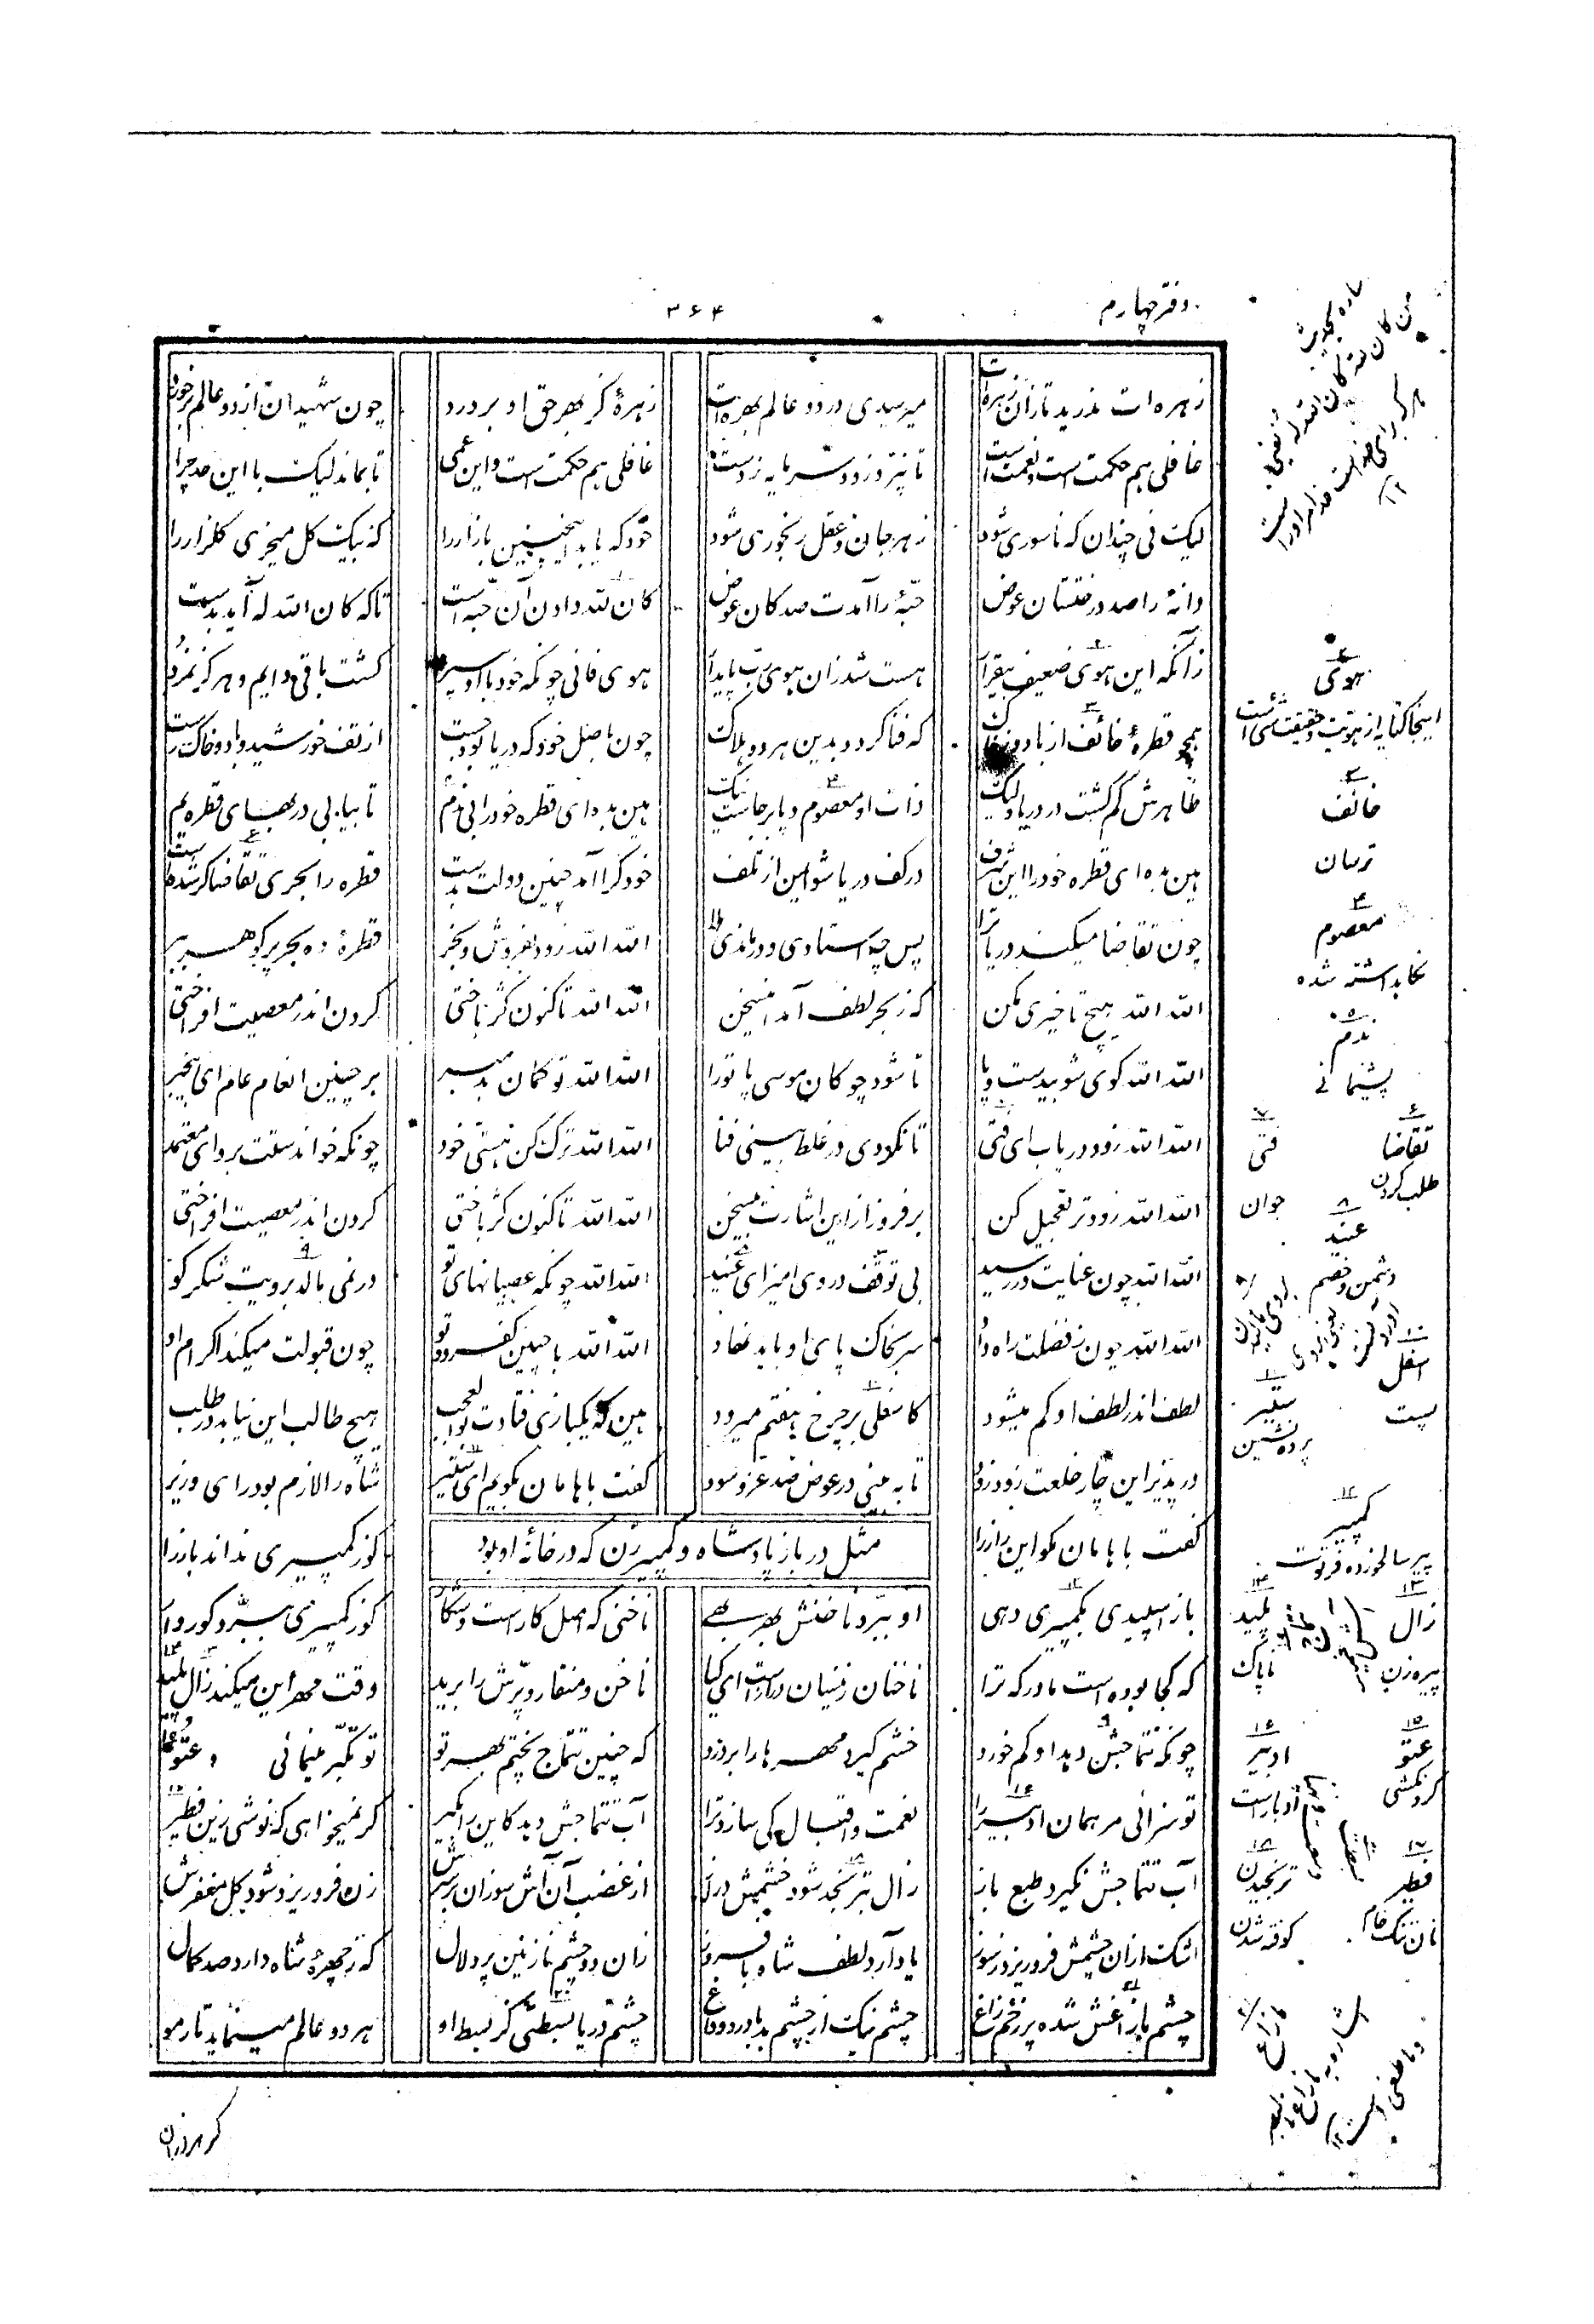 دفتر چهارم
۳۶۴
زهره‌ات ندرید تا زان زهره‌ات میرسیدی در دو عالم بهره‌ات زهرهٔ کز بهر حق او بر درد چون شهیدان از دو عالم برخورد
غافلی هم حکمت است و نعمت است تا نپرد زود سرمایه ز دست غافلی هم حکمت است و این عمی تا بماند لیک با این حد چرا
لیک نی چندان که ناسوری شود زهر جان و عقل رنجوری شود خود که یابد اینچنین بازار را که بیک گل میخری گلزار را
دانهٔ را صد درختستان عوض حبّهٔ را آمدت صد کان عوض کان لله دادن آن حبّه است تاکه کان الله له آید بدست
زانکه این هوی ضعیف بیقرار هست شد زان هوی رب پایدار هوی فانی چونکه خود با او سپرد گشت باقی دایم و هرگز نمرد
همچو قطرهٔ خائف از باد و ز خاک که فنا گردد بدین هر دو هلاک چون باصل خود که دریا بود جست از تف خورشید و باد و خاک رست
ظاهرش گم گشت در دریا و لیک ذات او معصوم و پابرجاست نیک هین بده ای قطره خود را بی ندم تا بیابی در بهای قطره یم
هین بده ای قطره خود را این شرف در کف دریا شو ایمن از تلف خود کرا آمد چنین دولت بدست قطره را بحری تقاضا گر شدست
چون تقاضا میکند دریا ترا پس چه استادی و درماندی هلا الله الله زود بفروش و بخر قطرهٔ ده بحر پر گوهر ببر
الله الله هیچ تاخیری مکن که ز بحر لطف آمد این سخن الله الله تاکنون کژ باختی گردن اندر معصیت افراختی
الله الله گوی شو بیدست و پا تا شود چوگان موسی پا تورا الله الله تو گمان بد مبر بر چنین انعام عام ای بیخبر
الله الله زود دریاب ای فتی تا نگردی در غلط بینی فنا الله الله ترک کن هستی خود چونکه خواندستت برو ای معتمد
الله الله زودتر تعجیل کن بر فروز از این اشارت بیسخن الله الله تاکنون کژ باختی گردن اندر معصیت افراختی
الله الله چون عنایت در رسید بی توقف در وی آمیز ای عنید الله الله چونکه عصیانهای تو در نمی بالد برویت شکر گو
الله الله چون ز فضلت راه داد سر بخاک پای او باید نهاد الله الله با چنین کفر دو تو چون قبولت میکند اکرام او
لطف اندر لطف او گم میشود کاسفلی بر چرخ هفتم میرود هین که یکبازی فتادت بوالعجب هیچ طالب این نیابد در طلب
در پذیر این چار خلعت زود زود تا به بینی در عوض صد عز و سود گفت با هامان بگویم ای ستیر شاه را لازم بود رای وزیر
گفت با هامان مگو این راز را کور کمپیری نداند باز را
مثل در باز پادشاه و کمپیر زن که در خانهٔ او بود
باز اسپیدی بکمپیری دهی او ببرد ناخنش بهر بهی ناخنی که اصل کارست و شکار کور کمپیری ببرد کوروار
که کجا بوده است مادر که ترا ناخنان زینسان درازست ای کیا ناخن و منقار و پرش را برید وقت مهر این میکند زال پلید
چونکه تتماجش دهد او کم خورد خشم گیرد مهرها را بردرد که چنین تتماج پختم بهر تو تو تکبّر مینمائی و عتو
تو سزائی مر همان ادبیر را نعمت و اقبال کی سازد ترا آب تتماجش دهد کاین را بگیر گر نمیخواهی که نوشی زین فطیر
آب تتماجش نگیرد طبع باز زال بترنجد شود خشمش دراز از غضب آن آش سوزان بر سرش زن فرو ریزد شود کل مغفرش
اشک از آن چشمش فرو ریزد ز سوز یاد آرد لطف شاه با فروز زان دو چشم نازنین پر دلال که ز چهرهٔ شاه دارد صد کمال
چشم ما زاغش شده پر زخم زاغ چشم نیک از چشم بد با درد و داغ چشم دریا بسطتی کز بسط او هر دو عالم مینماید تار مو
گر هزاران
من کان لله کان الله له
هر که برای خداست خدا مر او راست
۲ هوی
اینجا کنایه از هویت و حقیقت شئ است
۳ خائف
ترسان
۴ معصوم
نگاهداشته شده
۵ ندم
پشیمانی
۶ تقاضا
طلب کردن
۷ فتی
جوان
۸ عنید
دشمن و خصم
۱۰ اسفل
پست
۱۱ ستیر
پرده نشین
۱۲ کمپیر
پیر سالخورده فرتوت
۱۳ زال
پیره زن
۱۴ پلید
ناپاک
۱۵ عتو
گردنکشی
۱۶ ادبیر
ادبار است
۱۷ فطیر
نان تنک خام
۱۸ ترنجیدن
کوفته شدن